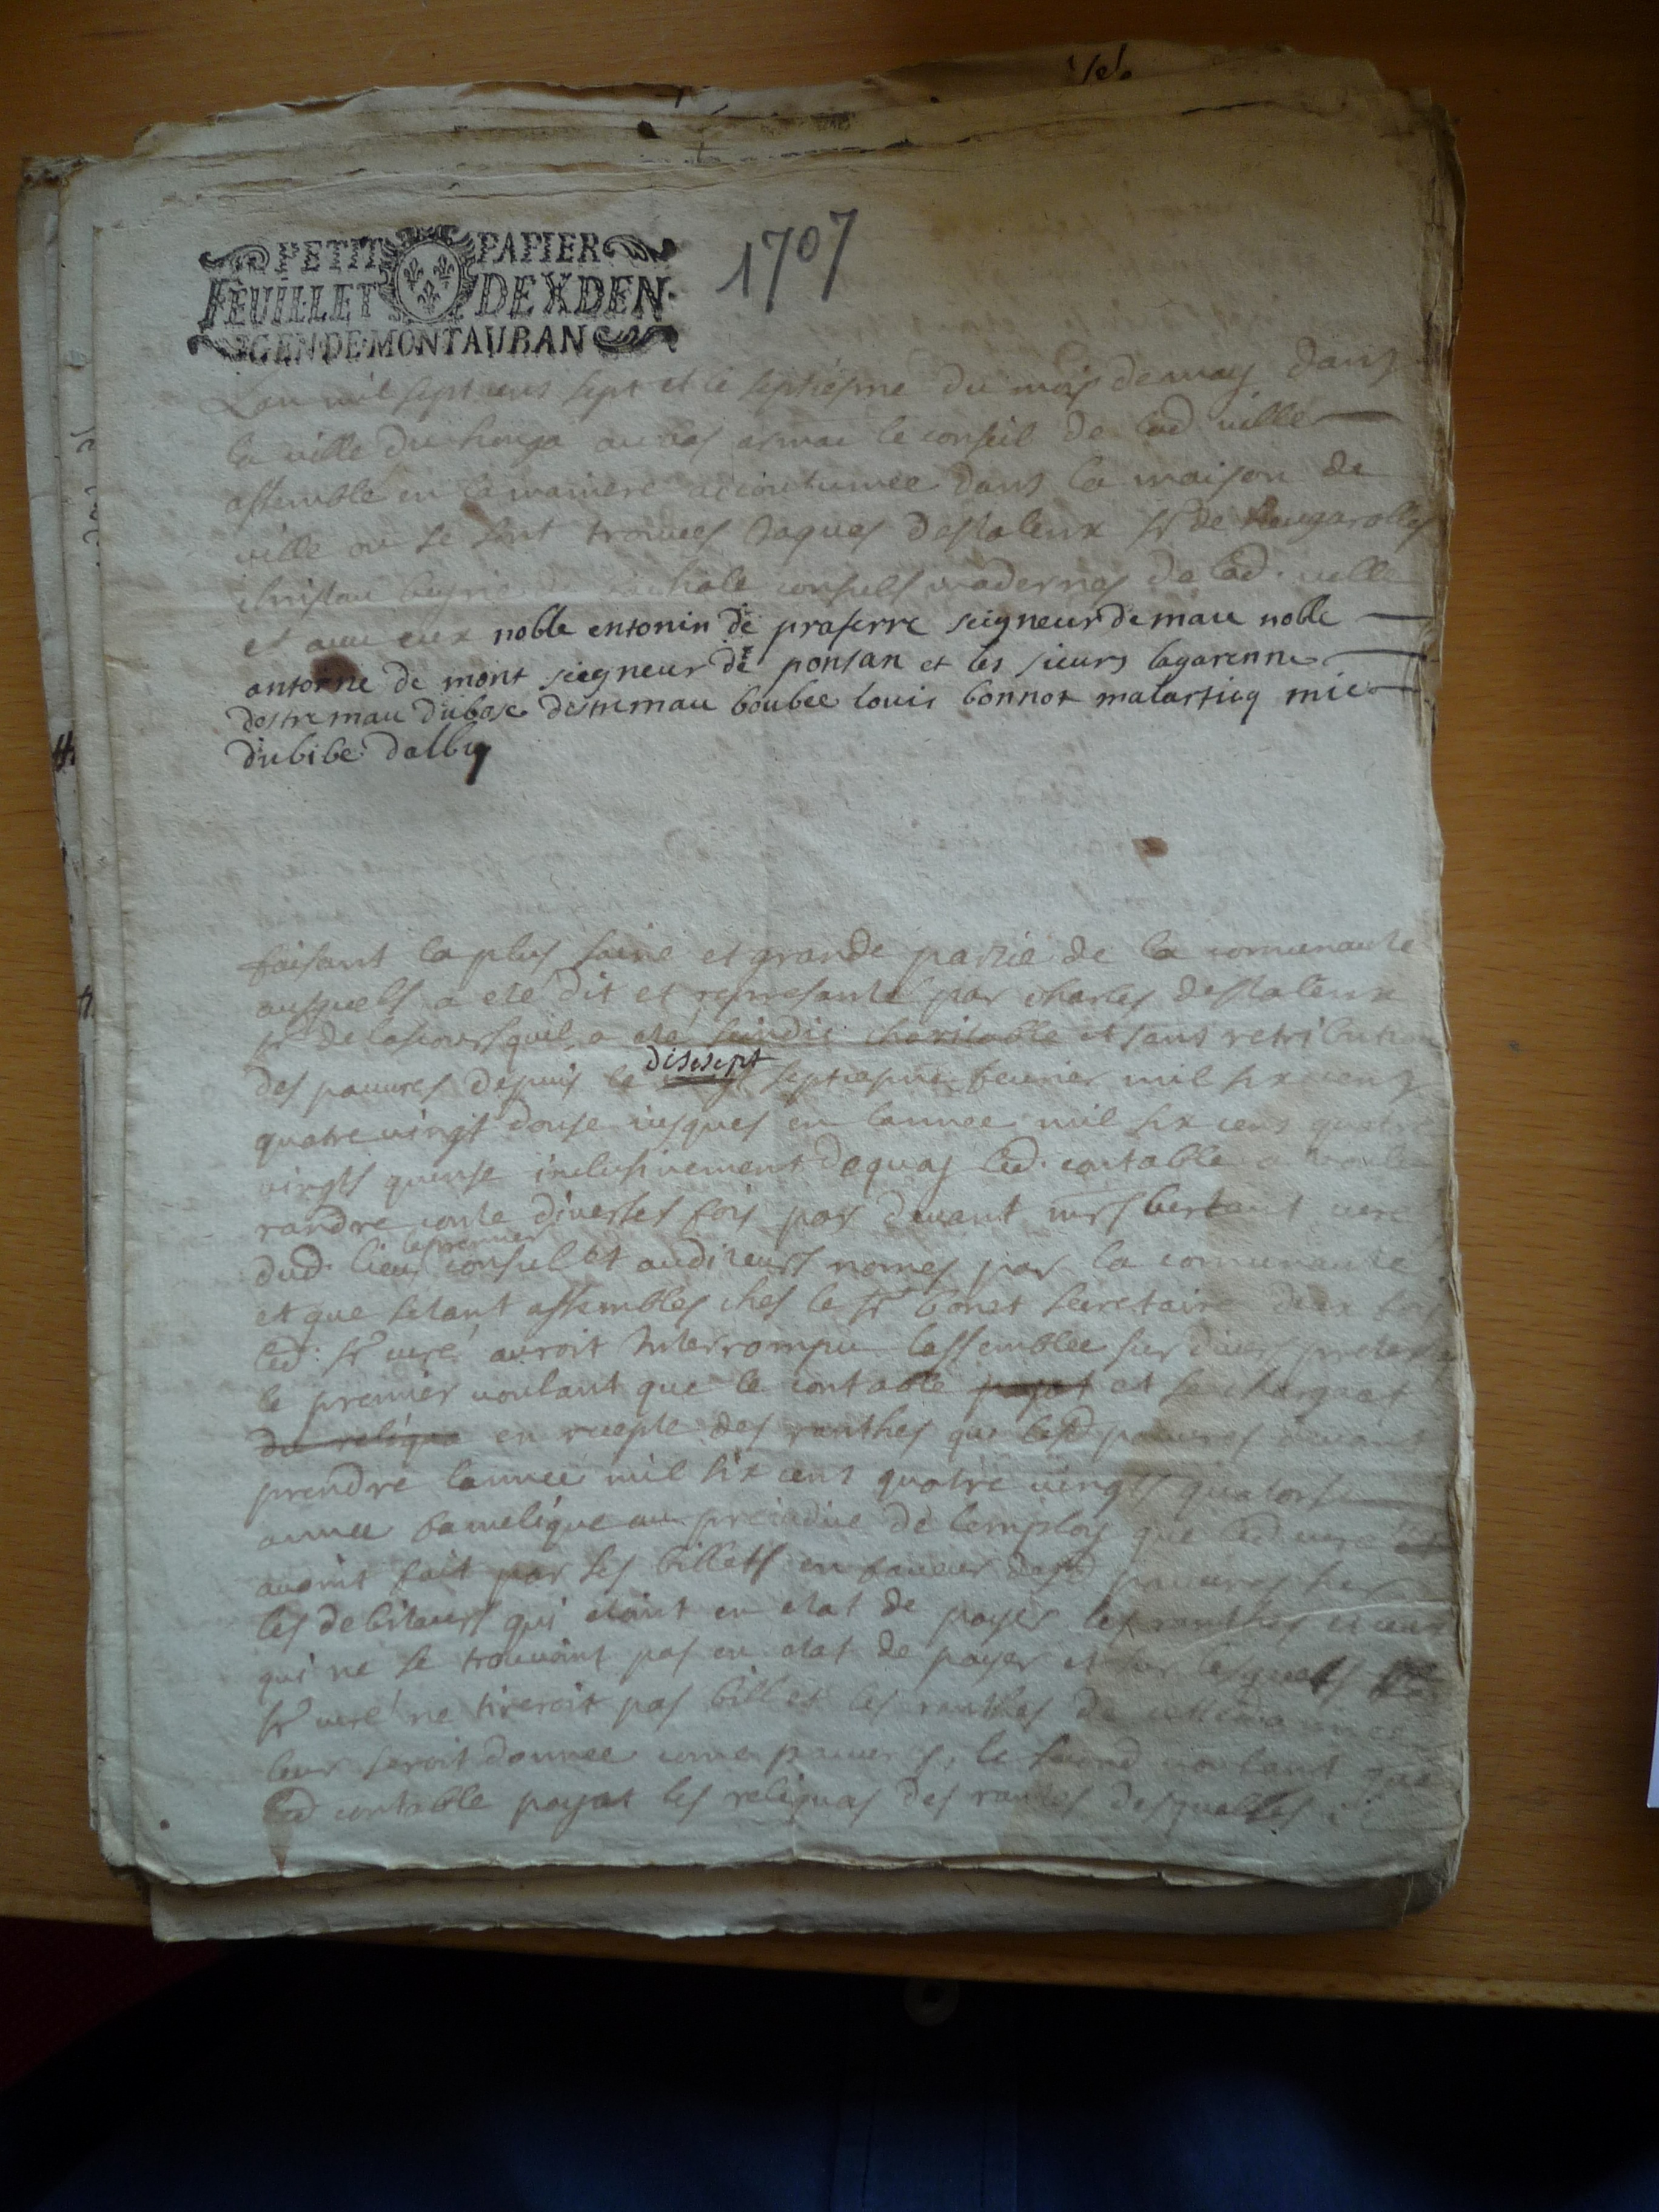 PETIT PAPIER
FEUILLET DE X DEN.
GEN DE MONTAUBAN
1707
Lan mil sept cens sept et le septiesme du mois de may dans
la ville du houga au bas armac le conseil de lad ville
assemblé en la maniere accoutumee dans la maison de
ville ou se sont trouves Jaques destaleux sr de
consuls modernes de lad. ville
et avec eux noble entonin de praferre seigneur de mau noble
antoine de mont seigneur de ponsan et les sieurs lagarenne
destremau dubosc destremau boubee louis bonnot malarticq mie
dubibe dalby
faisant la plus saine et grande partie de la comunaute
ausquels a ete dit et represanté par charles destaleux
sr de quil a eté scindic charitable et sans retribution
des pauvres depuis le disesept septiesme fevrier mil six cens
quatre vingt douse jusques en lannee mil six cens quatre
vingts quinse inclusivement dequoy led. contable a voulu
randre conte diverses fois par devant mrs curé
dud. lieu le premier consul et auditeurs nomes par la comunauté
et que setant assembles ches le sr bonet secretaire deux fois
led. sr curé auroit Interrompu lassemblee sur divers
le premier voulant que le contable payat et se chargeat
du reliqua en recepte des ranthes que lesd pauvres devoint
prendre lannee mil six cens quatre vingts quatorse
annee famelique au prejudice de lemploy que led curé
avoint fait par ses billets en faveur desd pauvres sur
les debiteurs qui etoint en etat de payer les ranthes et ceux
qui ne se trouvoint pas en etat de payer et sur lesquels
sr curé ne tireroit pas billet les ranthes de
leur seroit donnee come pauvres, le second voulant que
led contable payat les reliquas des rantes desquelles il